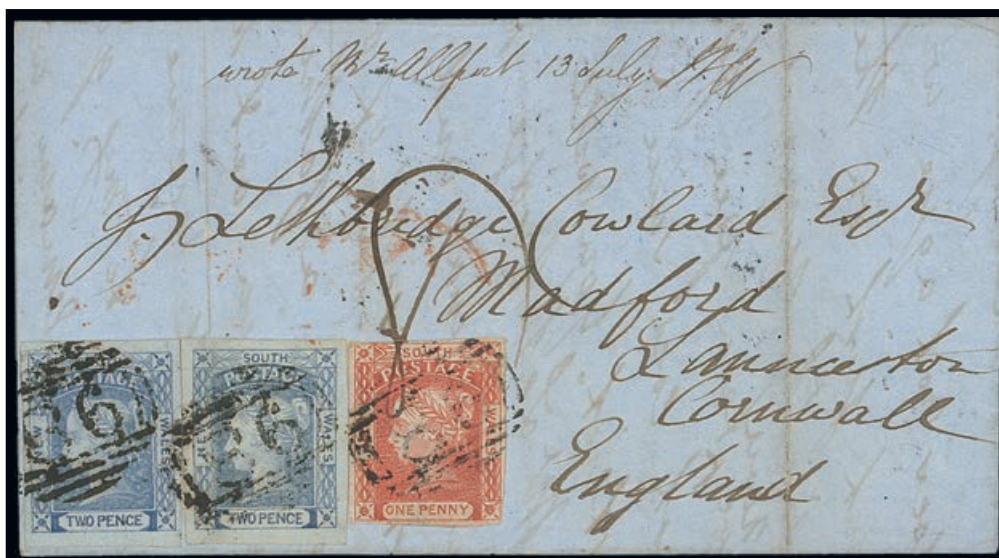 wrote Mr Allport 13 July
J. Lethbridge Cowlard Esqr
Madford
Launceston
Cornwall
England
POSTAGE
W
WALES
TWO PENCE
SOUTH
POSTAGE
NEW
WALES
TWO PENCE
SOUTH
POSTAGE
WALES
ONE PENNY